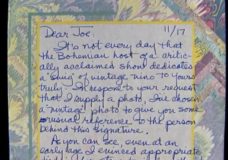 Dear Joe, 11/17
It's not every day that
the Bohemian host of a critic-
ally acclaimed show dedicates
a slug of vintage vino to yours
truly. To respond to your request
that I supply a photo, I've chosen
a vintage photo to give you some
visual reference to the person
behind this signature.
As you can see, even at an
early age I evinced appropriate